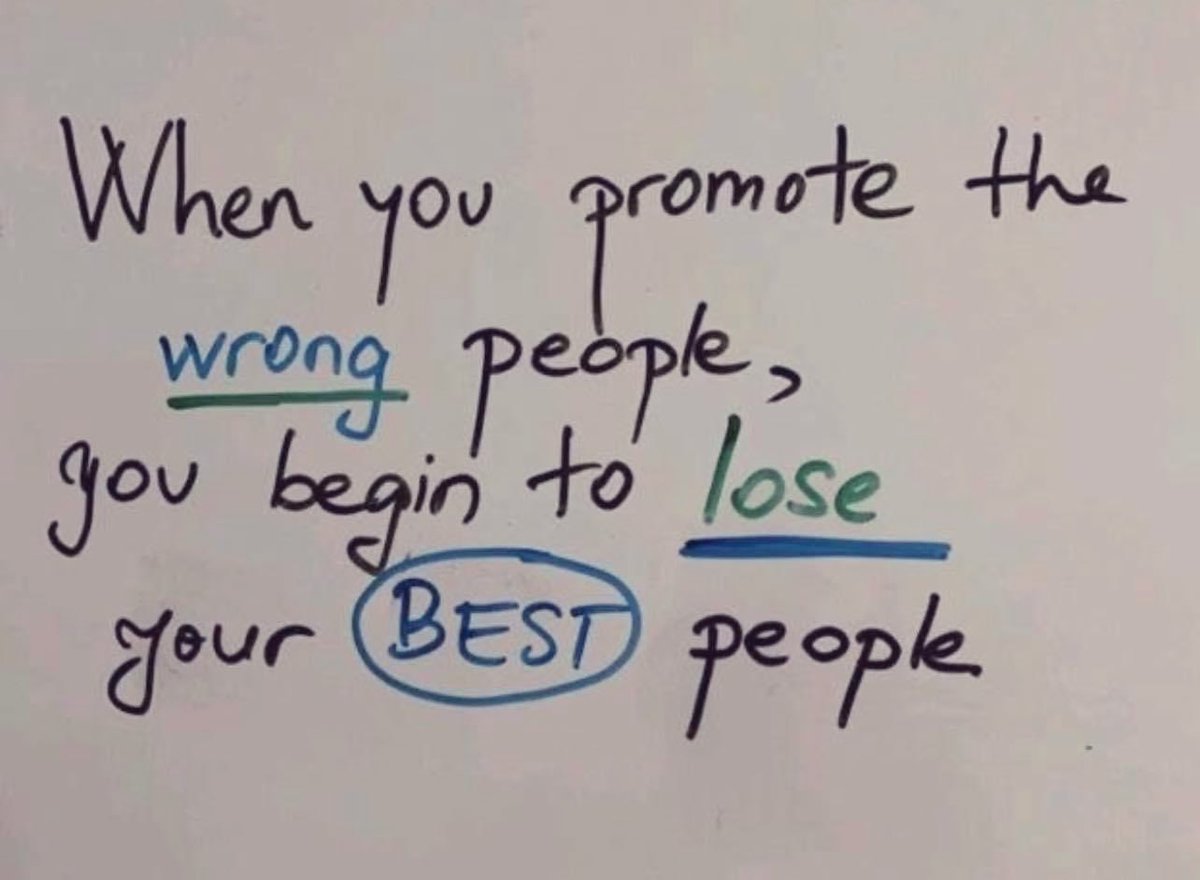 When you promote the
wrong people,
you begin to lose
your BEST people